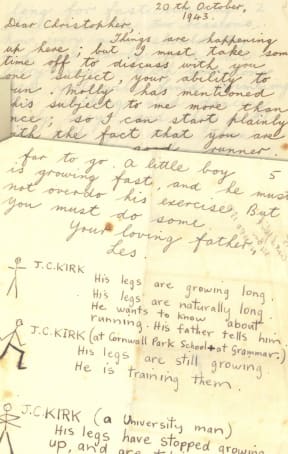 20th October,
1943.
Dear Christopher,
Things are happening
up here; but I must take som
time off to discuss with you
one subject, your ability to
un. Molly has mentioned
his subject to me more than
nce; so I can start plainly
ith the fact that you are
runner.
far to go. A little boy
5
is growing fast, and he must
not overdo his exercise. But
you must do some.
Your loving father,
Les.
J.C.KIRK
His legs are growing long.
His legs are naturally long.
He wants to know about
running. His father tells him.
J.C.KIRK (at Cornwall Park School + at Grammar.)
His legs are still growing.
He is training them.
J.C.KIRK (a University man)
His legs have stopped growing
up, and are